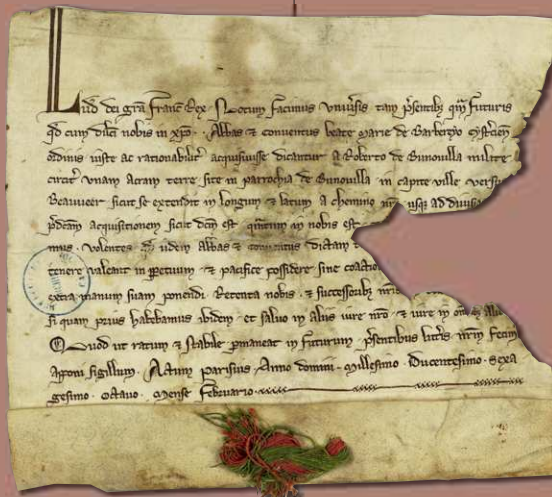 Lud dei gra Franc Rex. Notum facimus Universis tam psentibz qm futuris
qd cum dilci nobis in xpo. Abbas & conventus beate marie de Barbergio cystercien
ordinis iuste ac rationabilit acquisivisse dicantur a Roberto de Bunouilla milite
circit unam acram terre site in parrochia de Bunouilla in capite ville versus
Beauveer sicut se extendit in longum & latum a chemino nro usq ad
pdcam acquisitionem sicut dcm est quntum in nobis est
mus. Volentes qd iidem Abbas & conventus dictam
tenere valeant in ppetuum & pacifice possidere sine
extra manum suam ponendi. Retenta nobis. & successoribz
si quam prius habebamus ibidem. et salvo in aliis iure nro. & iure in
Quod ut ratum & stabile pmaneat in futurum psentibus litis nrm
Apponi sigillum. Actum parisius Anno domini. Millesimo. Ducentesimo. sexa
gesimo. octavo. mense Februario.